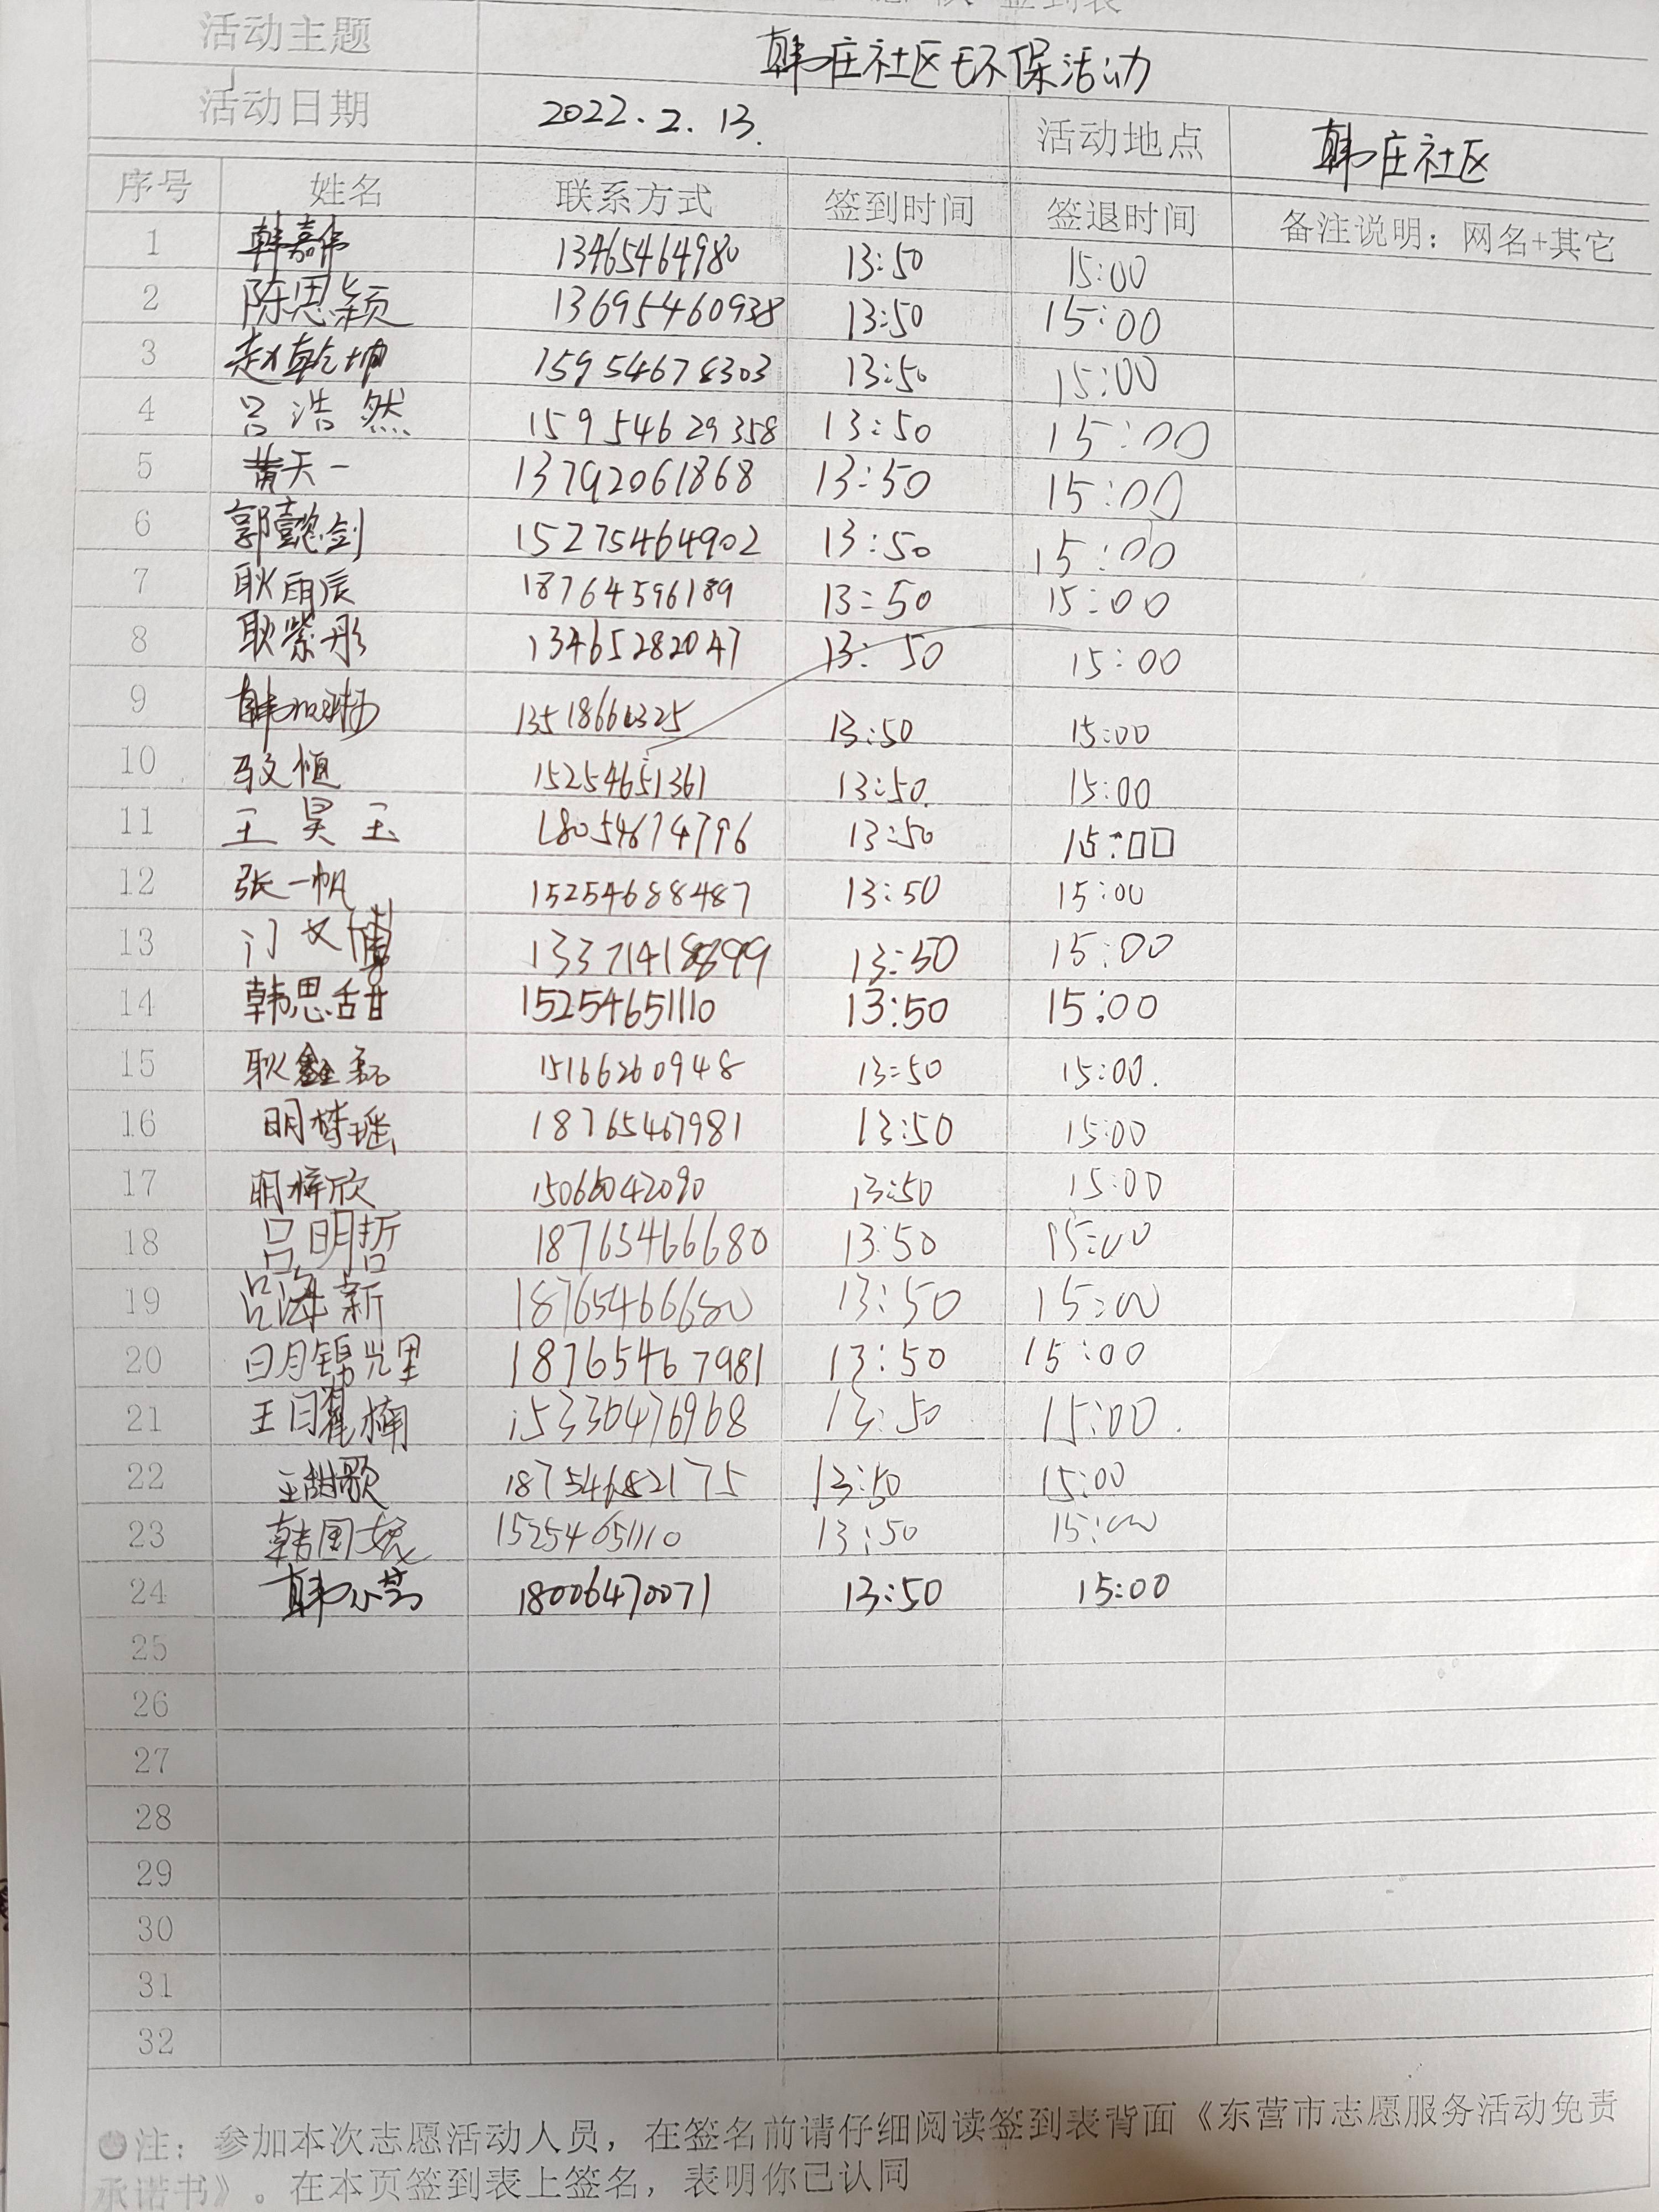 签到表
活动主题 韩庄社区环保活动
活动日期 2022.2.13. 活动地点 韩庄社区
序号 姓名 联系方式 签到时间 签退时间 备注说明：网名+其它
1 韩嘉伟 13465464980 13:50 15:00
2 陈思颖 13695460938 13:50 15:00
3 赵乾坤 15954678303 13:50 15:00
4 吕浩然 15954629358 13:50 15:00
5 黄天一 13792061868 13:50 15:00
6 郭懿剑 15275464902 13:50 15:00
7 耿雨辰 18764596189 13:50 15:00
8 耿紫彤 13465282047 13:50 15:00
9 13:50 15:00
10 15254651361 13:50 15:00
11 王昊玉 18054674796 13:50 15:00
12 张一帆 15254688487 13:50 15:00
13 门文博 13:50 15:00
14 韩思甜 15254651110 13:50 15:00
15 耿鑫磊 15166260948 13:50 15:00.
16 明梦瑶 18765467981 13:50 15:00
17 明梓欣 15066042090 13:50 15:00
18 吕明哲 18765466680 13:50 15:00
19 吕海新 18765466680 13:50 15:00
20 明锦程 18765467981 13:50 15:00
21 王曜楠 15336476968 13:50 15:00.
22 王甜歌 18754682175 13:50 15:00
23 15254651110 13:50 15:00
24 18006470071 13:50 15:00
25
26
27
28
29
30
31
32
注：参加本次志愿活动人员，在签名前请仔细阅读签到表背面《东营市志愿服务活动免责
承诺书》。在本页签到表上签名，表明你已认同